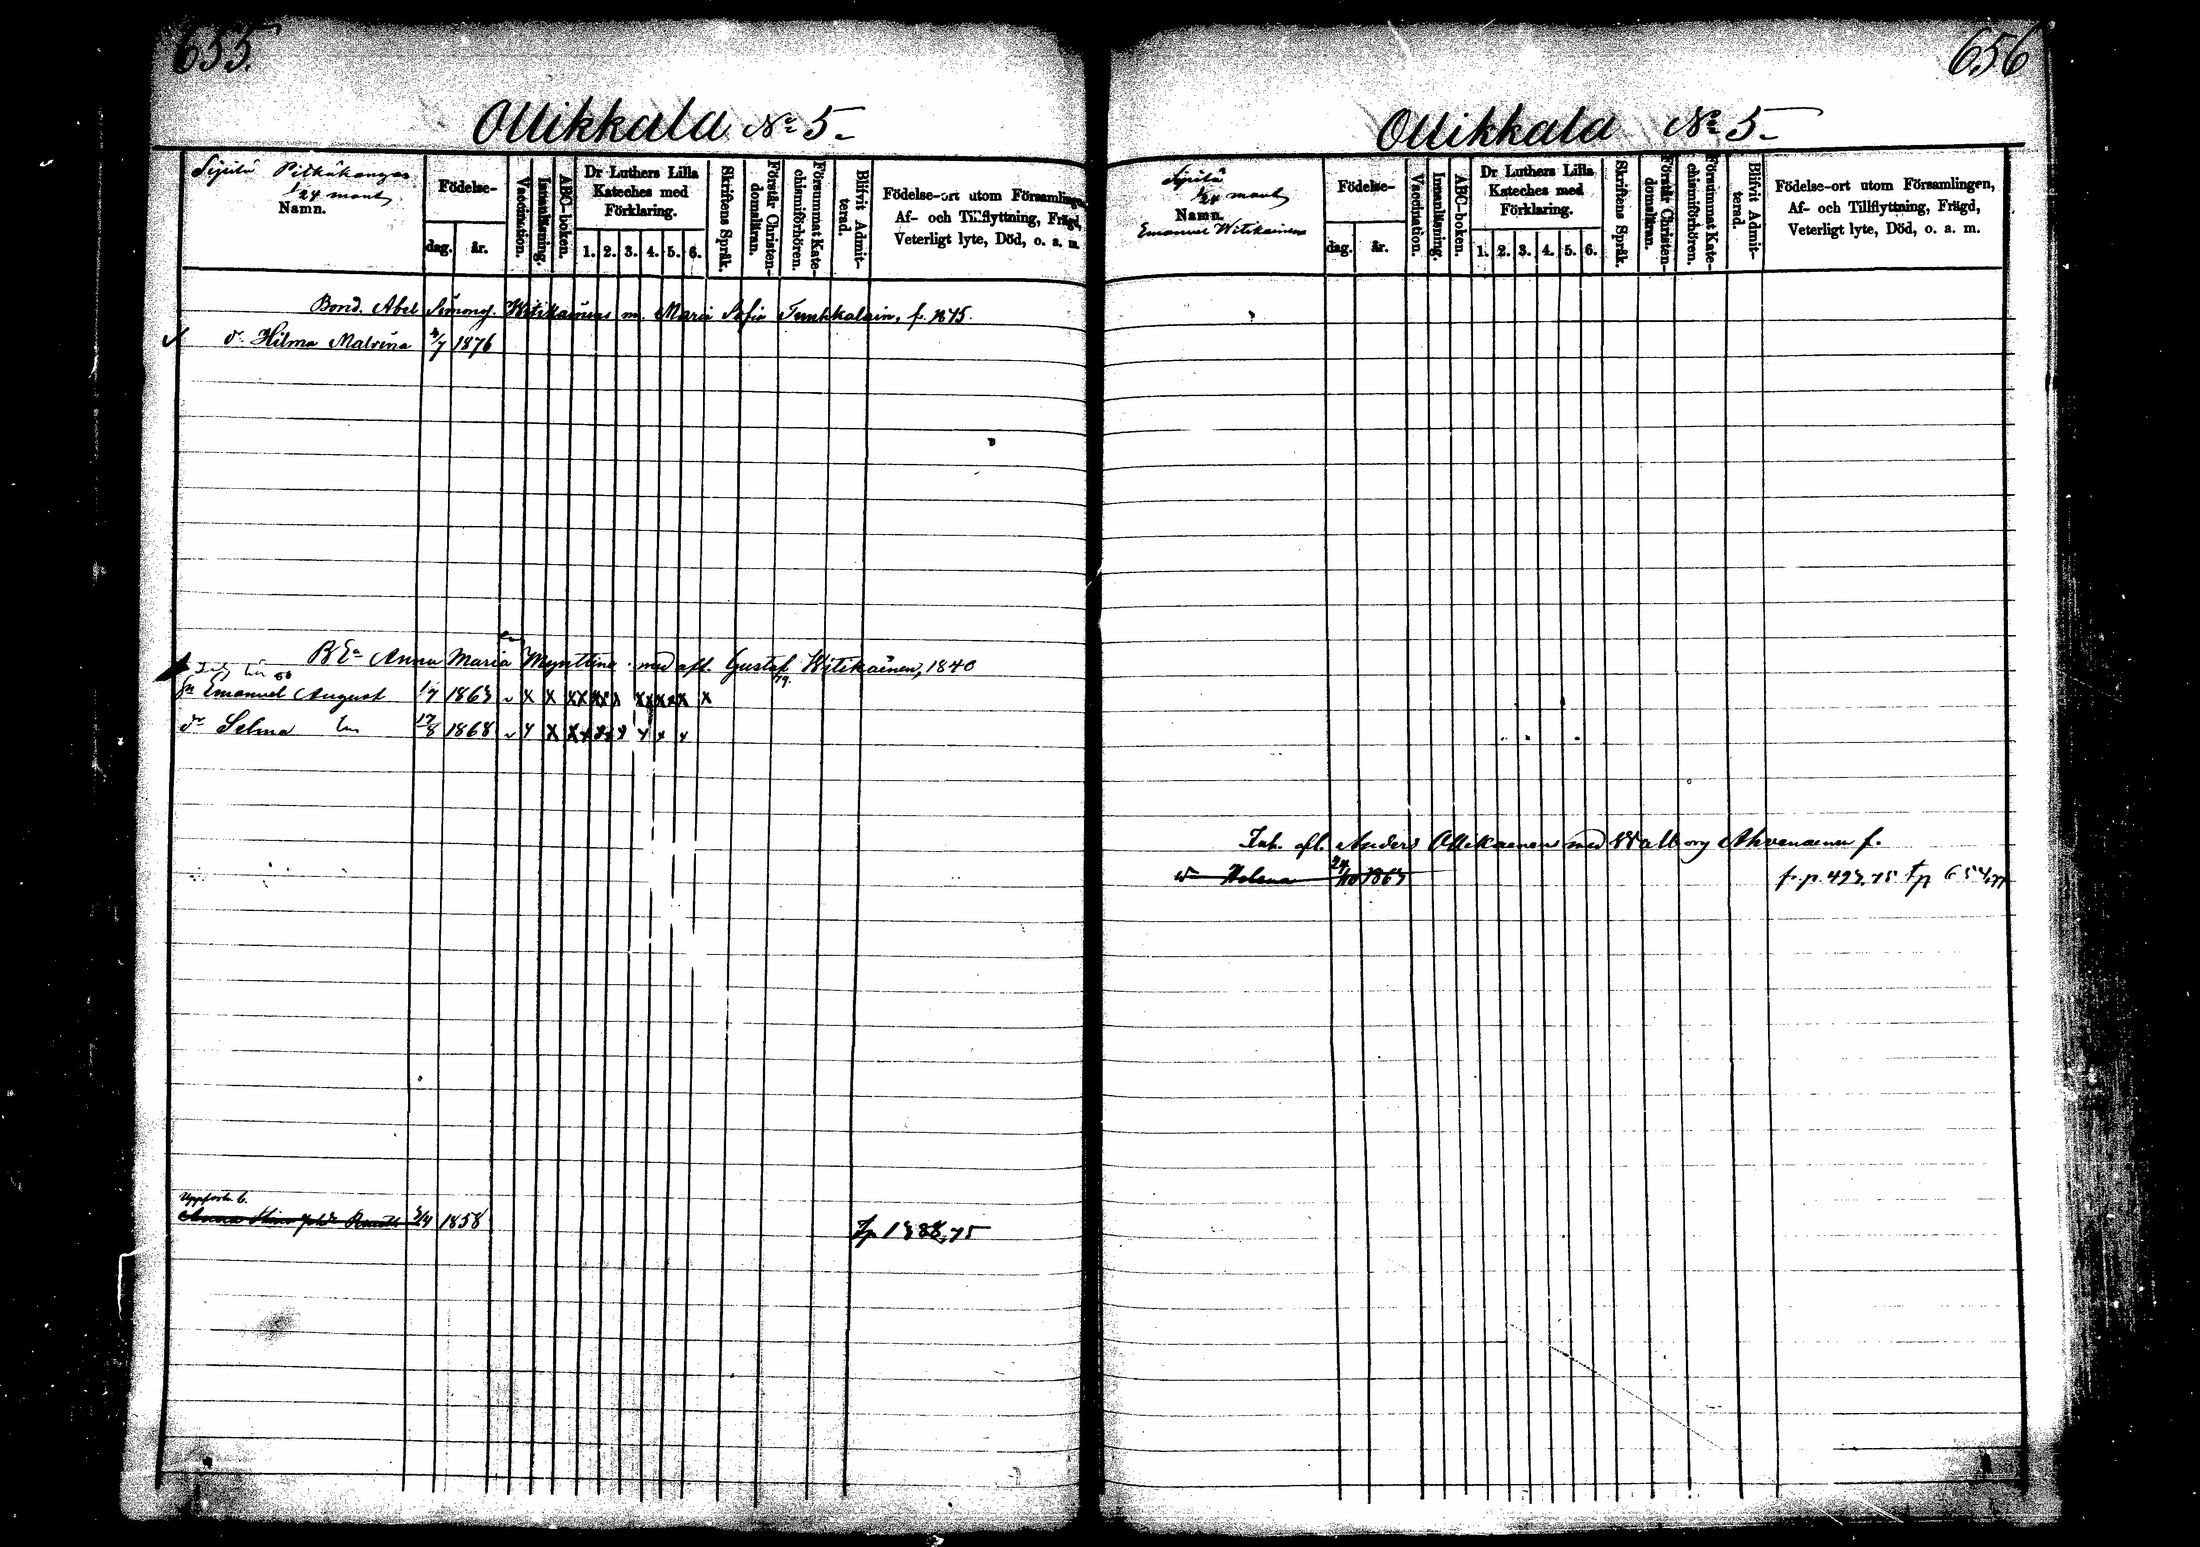 655.
Ollikkala No 5.
Sipilä Pitkäkangas
1/24 mant.
Namn.
Födelse-
dag. år.
Vaccination.
Innanläsning.
ABC-boken.
Dr Luthers Lilla
Kateches med
Förklaring.
1. 2. 3. 4. 5. 6.
Skriftens Språk.
Förstår Christen-
domsläran.
Försummat Kate-
chismiförhören.
Blifvit Admit-
terad.
Födelse-ort utom Församlingen,
Af- och Tillflyttning, Frägd,
Veterligt lyte, Död, o. a. m.
Bond. Abel Simons. Witikainens m. Maria Sofia f. 1875.
dr Hilma Malvina 2/7 1876
B Ea Anna Maria Mynttine med afl. Gustaf Witikainen, 1840
Sn Emanuel August 1/7 1863 x x x x x x x x x x x x x
dr Selma 17/8 1868 x x x x x x x x x x
Anna 3/4 1858
Tp 1388,75
656
Ollikkala No 5.
Sipilä
1/24 mant.
Namn.
Emanuel Witikainen
Födelse-
dag. år.
Vaccination.
Innanläsning.
ABC-boken.
Dr Luthers Lilla
Kateches med
Förklaring.
1. 2. 3. 4. 5. 6.
Skriftens Språk.
Förstår Christen-
domsläran.
Försummat Kate-
chismiförhören.
Blifvit Admit-
terad.
Födelse-ort utom Församlingen,
Af- och Tillflyttning, Frägd,
Veterligt lyte, Död, o. a. m.
Inh. afl. Anders Ollikainens med Walborg Ahvenainen f.
dr Helena 24/10 1863 f. p. 423,75 tp 654,77